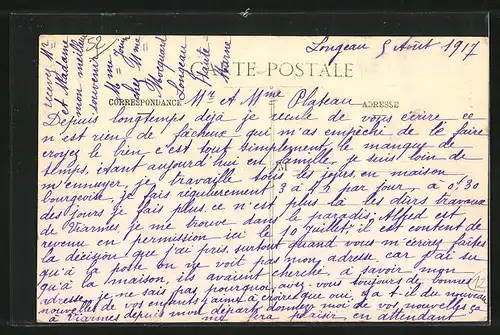 Longeau 5 Août 1917
CARTE POSTALE
CORRESPONDANCE
ADRESSE
Mr et Mme Plateau
Depuis longtemps déjà je recule de vous écrire, ce
n'est rien de fâcheux qui m'as empêché de le faire
croyez le bien c'est tout simplement le manque de
temps, étant aujourd'hui en famille, je suis loin de
m'ennuyer, je travaille tous les jours en maison
bourgeoise, je fais régulièrement 3 à 4 h par jour, à 0.30
des jours je fais plus. ce n'est plus là les durs travaux
de Viarmes, je me trouve dans le paradis; Alfred est
revenu en permission ici le 10 juillet; il est content de
la décision que j'ai pris, surtout quand vous m'écrirez faites
qu'à la poste on ne voit pas mon adresse car j'ai su
qu'à la maison, ils avaient cherché à savoir mon
adresse, je ne sais pas pourquoi, avez-vous toujours de bonnes
nouvelles de vos enfants j'aime à croire que oui, y a-t-il du nouveau
à Viarmes depuis mon départ, donnez moi de vos nouvelles ça
me fera plaisir en attendant
recevez Mr
et Madame
mon meilleur
souvenir
52
Mme
chez Mme
Longeau
Haute
Marne
12